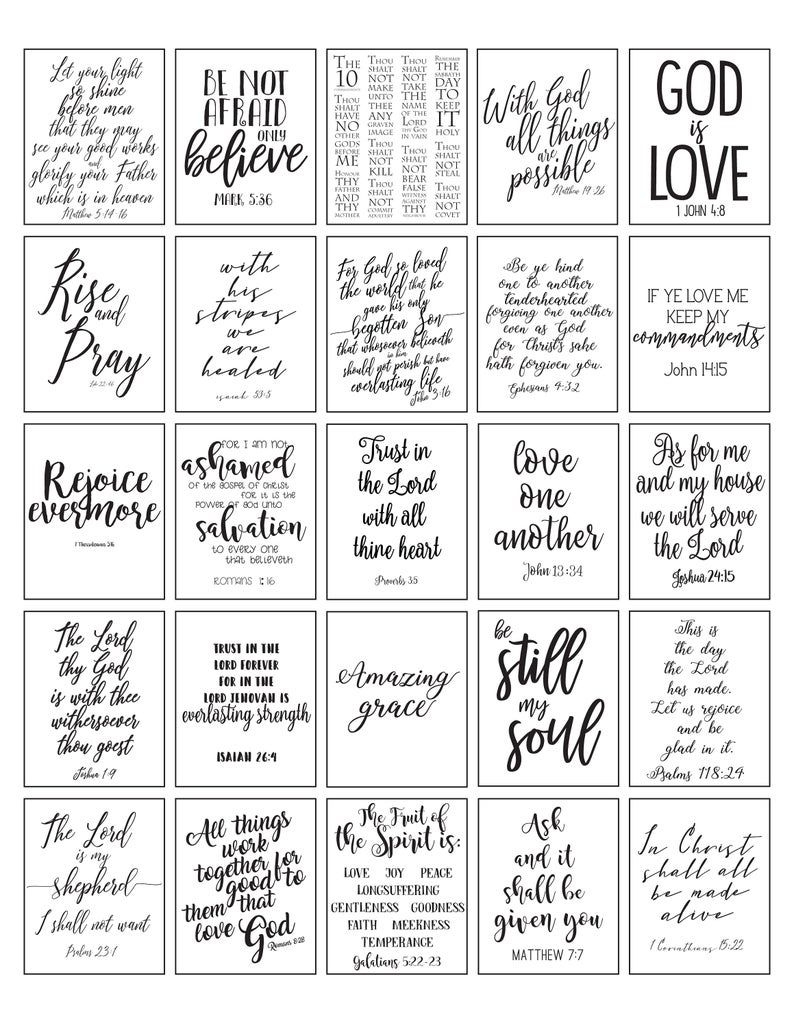 Let your light
so shine
before men
that they may
see your good works
and
glorify your Father
which is in heaven
Matthew 5:14-16
BE NOT
AFRAID
ONLY
believe
MARK 5:36
THE
10
THOU
SHALT
HAVE
NO
OTHER
GODS
BEFORE
ME
HONOUR
THY
FATHER
AND
THY
MOTHER
THOU
SHALT
NOT
MAKE
UNTO
THEE
ANY
GRAVEN
IMAGE
THOU
SHALT
NOT
KILL
THOU
SHALT
NOT
COMMIT
ADULTERY
THOU
SHALT
NOT
TAKE
THE
NAME
OF THE
LORD
THY GOD
IN VAIN
THOU
SHALT
NOT
BEAR
FALSE
WITNESS
AGAINST
THY
NEIGHBOUR
REMEMBER
THE
SABBATH
DAY
TO
KEEP
IT
HOLY
THOU
SHALT
NOT
STEAL
THOU
SHALT
NOT
COVET
With God
all things
are
possible
Matthew 19:26
GOD
is
LOVE
1 JOHN 4:8
Rise
and
Pray
with
his
stripes
we
are
healed
isaiah 53:5
For God so loved
the world that he
gave his only
begotten Son
that whosoever believeth
in him
should not perish but have
everlasting life
John 3:16
Be ye kind
one to another
tenderhearted
forgiving one another
even as God
for Christ's sake
hath forgiven you.
Ephesians 4:32
IF YE LOVE ME
KEEP MY
commandments
John 14:15
Rejoice
evermore
1 Thessalonians 5:16
FOR I AM NOT
ashamed
OF THE GOSPEL OF CHRIST
FOR IT IS THE
POWER OF GOD UNTO
salvation
TO EVERY ONE
THAT BELIEVETH
ROMANS 1:16
Trust in
the Lord
with all
thine heart
Proverbs 3:5
love
one
another
John 13:34
As for me
and my house
we will serve
the Lord
Joshua 24:15
The Lord
thy God
is with thee
withersoever
thou goest
Joshua 1:9
TRUST IN THE
LORD FOREVER
FOR IN THE
LORD JEHOVAH IS
everlasting strength
ISAIAH 26:4
Amazing
grace
be
still
my
soul
This is
the day
the Lord
has made.
Let us rejoice
and be
glad in it.
Psalms 118:24
The Lord
is my
shepherd
I shall not want
Psalms 23:1
All things
work
together for
good to
them that
love God
Romans 8:28
The Fruit of
the Spirit is:
LOVE JOY PEACE
LONGSUFFERING
GENTLENESS GOODNESS
FAITH MEEKNESS
TEMPERANCE
Galatians 5:22-23
Ask
and it
shall be
given you
MATTHEW 7:7
In Christ
shall all
be made
alive
1 Corinthians 15:22